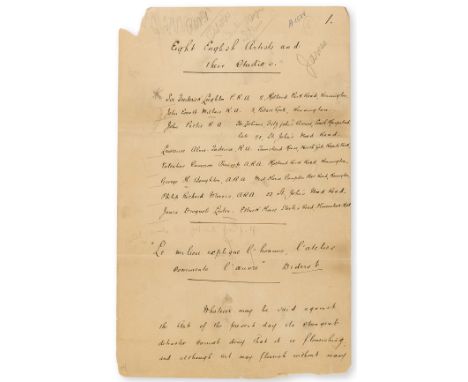 1.
Eight English Artists and
their Studios.
Sir Frederick Leighton P.R.A. 2, Holland Park Road, Kensington
John Everett Millais R.A. 2, Palace Gate, Kensington
John Pettie R.A. The Lothians, Fitz John's Avenue,
St. John's Wood Road.
Lawrence Alma Tadema R.A. Townshend House, North Gate, Regent's Park,
Valentine Cameron Prinsep A.R.A. Holland Park Road, Kensington,
George H. Boughton, A.R.A. West House Campden Hill Road, Kensington,
Philip Richard Morris A.R.A. 33 St. John's Wood Road.
James Dromgole Linton,
"Le milieu explique l'homme, l'atelier
commente l'œuvre" Diderot.
Whatever may be said against
the Art of the present day its strongest
detractor cannot deny that it is flourishing
and although art may flourish without many